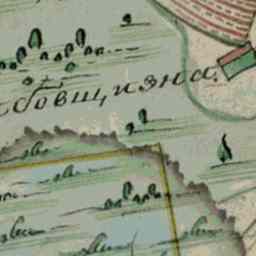 бовщизна